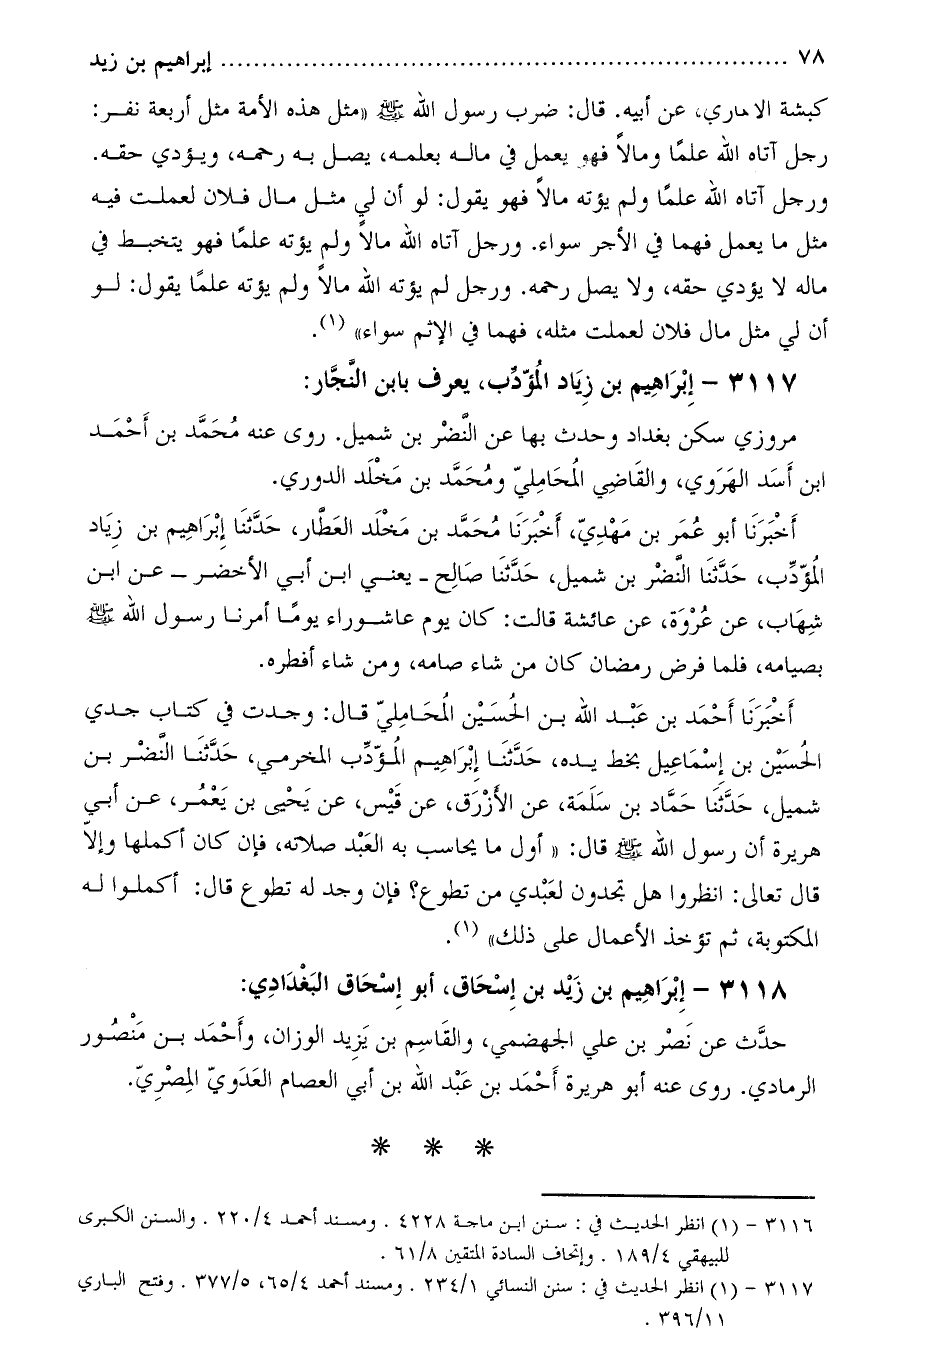 ٧٨ ........................................ إبراهيم بن زيد
كبشة الانماري، عن أبيه. قال: ضرب رسول الله ﷺ «مثل هذه الأمة مثل أربعة نفر:
رجل آتاه الله علمًا ومالاً فهو يعمل في ماله بعلمه، يصل به رحمه، ويؤدي حقه.
ورجل آتاه الله علمًا ولم يؤته مالاً فهو يقول: لو أن لي مثل مال فلان لعملت فيه
مثل ما يعمل فهما في الأجر سواء. ورجل آتاه الله مالاً ولم يؤته علمًا فهو يتخبط في
ماله لا يؤدي حقه، ولا يصل رحمه. ورجل لم يؤته الله مالاً ولم يؤته علمًا يقول: لو
أن لي مثل مال فلان لعملت مثله، فهما في الإثم سواء» (١).
٣١١٧ – إبْرَاهِيم بن زِيَاد المُؤَدِّب، يعرف بابن النَّجَّار:
مروزي سكن بغداد وحدث بها عن النَّضْر بن شميل. روى عنه مُحَمَّد بن أَحْمَد
ابن أَسَد الهَرَوي، والقَاضِي المُحَامِليّ ومُحَمَّد بن مَخْلَد الدوري.
أَخْبَرَنَا أبو عُمَر بن مَهْدِيّ، أَخْبَرَنَا مُحَمَّد بن مَخْلَد العَطَّار، حَدَّثَنَا إبْرَاهِيم بن زِيَاد
المُؤَدِّب، حَدَّثَنَا النَّضْر بن شميل، حَدَّثَنَا صَالِح - يعني ابن أبي الأخضر – عن ابن
شِهَاب، عن عُرْوَة، عن عائشة قالت: كان يوم عاشوراء يومًا أمرنا رسول الله ﷺ
بصيامه، فلما فرض رمضان كان من شاء صامه، ومن شاء أفطره.
أَخْبَرَنَا أَحْمَد بن عَبْد الله بن الحُسَيْن المُحَامِليّ قال: وجدت في كتاب جدي
الحُسَيْن بن إسْمَاعِيل بخط يده، حَدَّثَنَا إبْرَاهِيم المُؤَدِّب المخرمي، حَدَّثَنَا النَّضْر بن
شميل، حَدَّثَنَا حَمَّاد بن سَلَمَة، عن الأَزْرَق، عن قَيْس، عن يَحْيَى بن يَعْمُر، عن أبي
هريرة أن رسول الله ﷺ قال: « أول ما يحاسب به العَبْد صلاته، فإن كان أكملها وإلاّ
قال تعالى: انظروا هل تجدون لعَبْدي من تطوع؟ فإن وجد له تطوع قال: أكملوا له
المكتوبة، ثم تؤخذ الأعمال على ذلك» (١).
٣١١٨ – إبْرَاهِيم بن زَيْد بن إسْحَاق، أبو إسْحَاق البَغْدَادِي:
حدَّث عن نَصْر بن علي الجهضمي، والقَاسِم بن يَزِيد الوزان، وأَحْمَد بن مَنْصُور
الرمادي. روى عنه أبو هريرة أَحْمَد بن عَبْد الله بن أبي العصام العَدَويّ المِصْرِيّ.
* * *
٣١١٦ – (١) انظر الحديث في : سنن ابن ماجة ٤٢٢٨ . ومسند أحمد ٢٢٠/٤ . والسنن الكبرى
للبيهقي ١٨٩/٤ . وإتحاف السادة المتقين ٦١/٨ .
٣١١٧ – (١) انظر الحديث في : سنن النسائي ٢٣٤/١ . ومسند أحمد ٦٥/٤، ٣٧٧/٥ . وفتح الباري
٣٩٦/١١ .